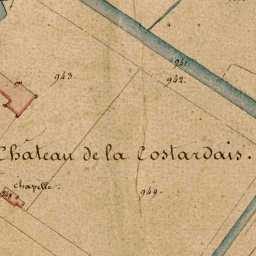 941.
943.
942.
Château de la Costardais.
chapelle.
949.